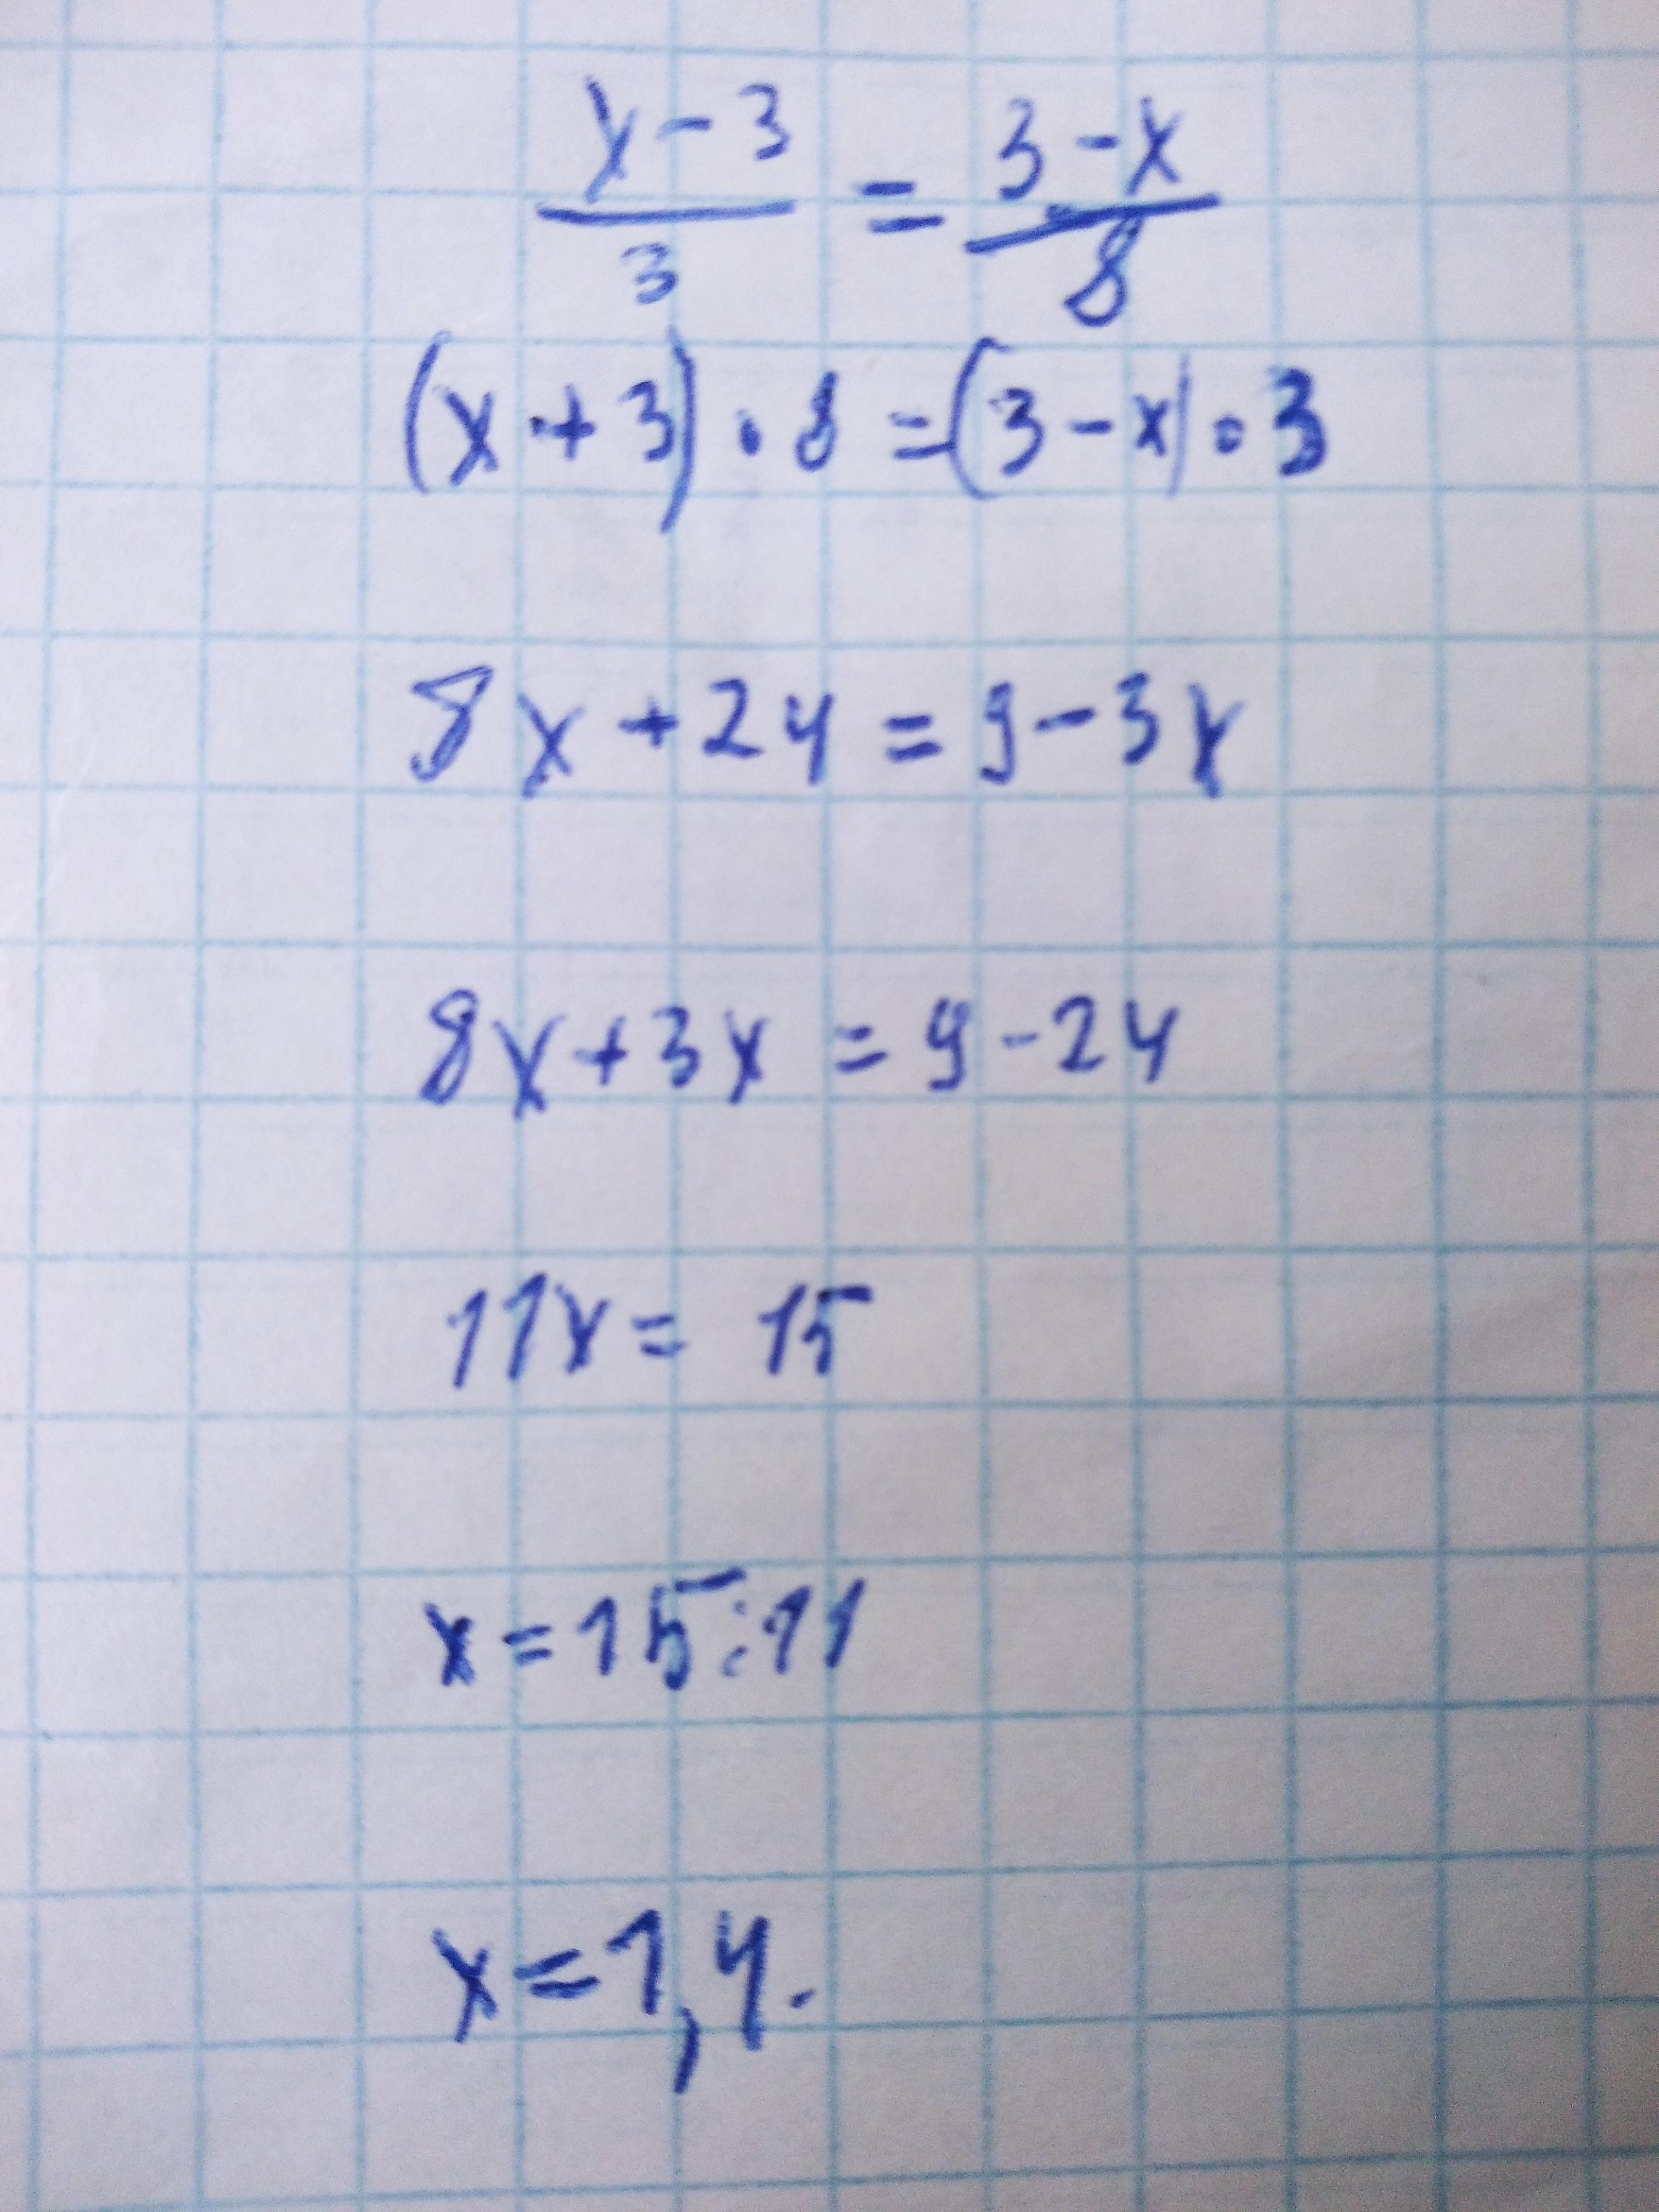 x-3/3 = 3-x/8
(x+3)·8=(3-x)·3
8x+24=9-3x
8x+3x=9-24
11x=15
x=15:11
x=1,4.